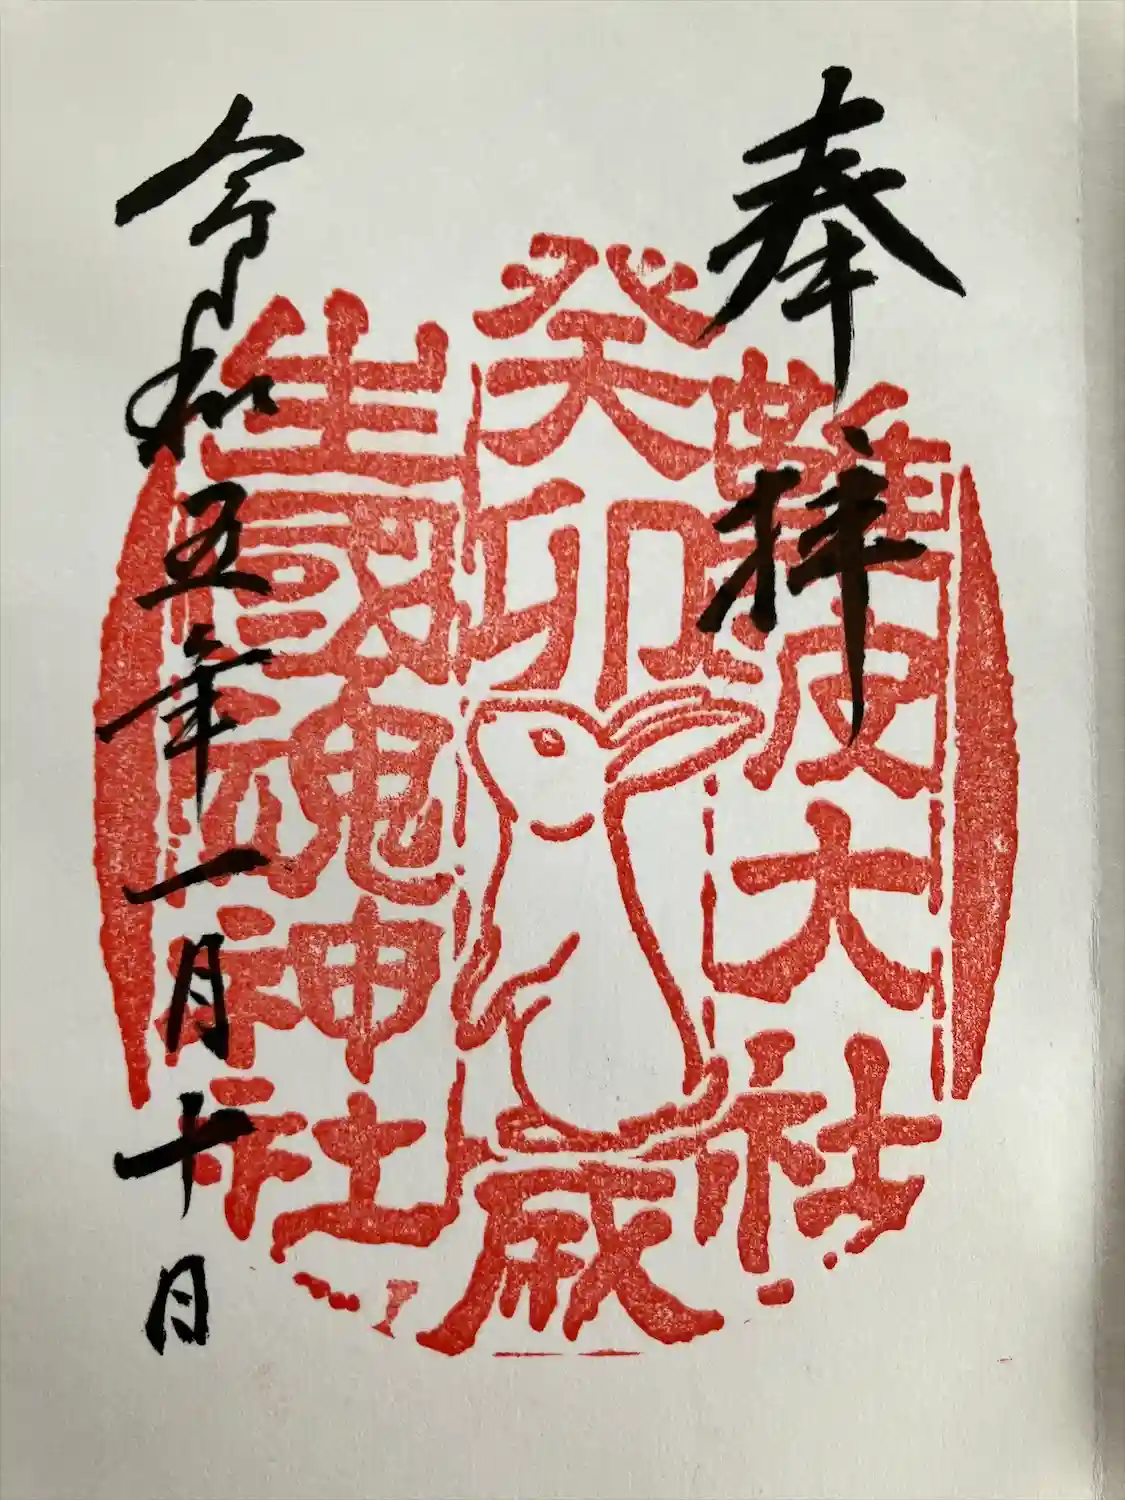 奉拝
難波大社
癸卯
歳
生國魂神社
令和五年一月十日